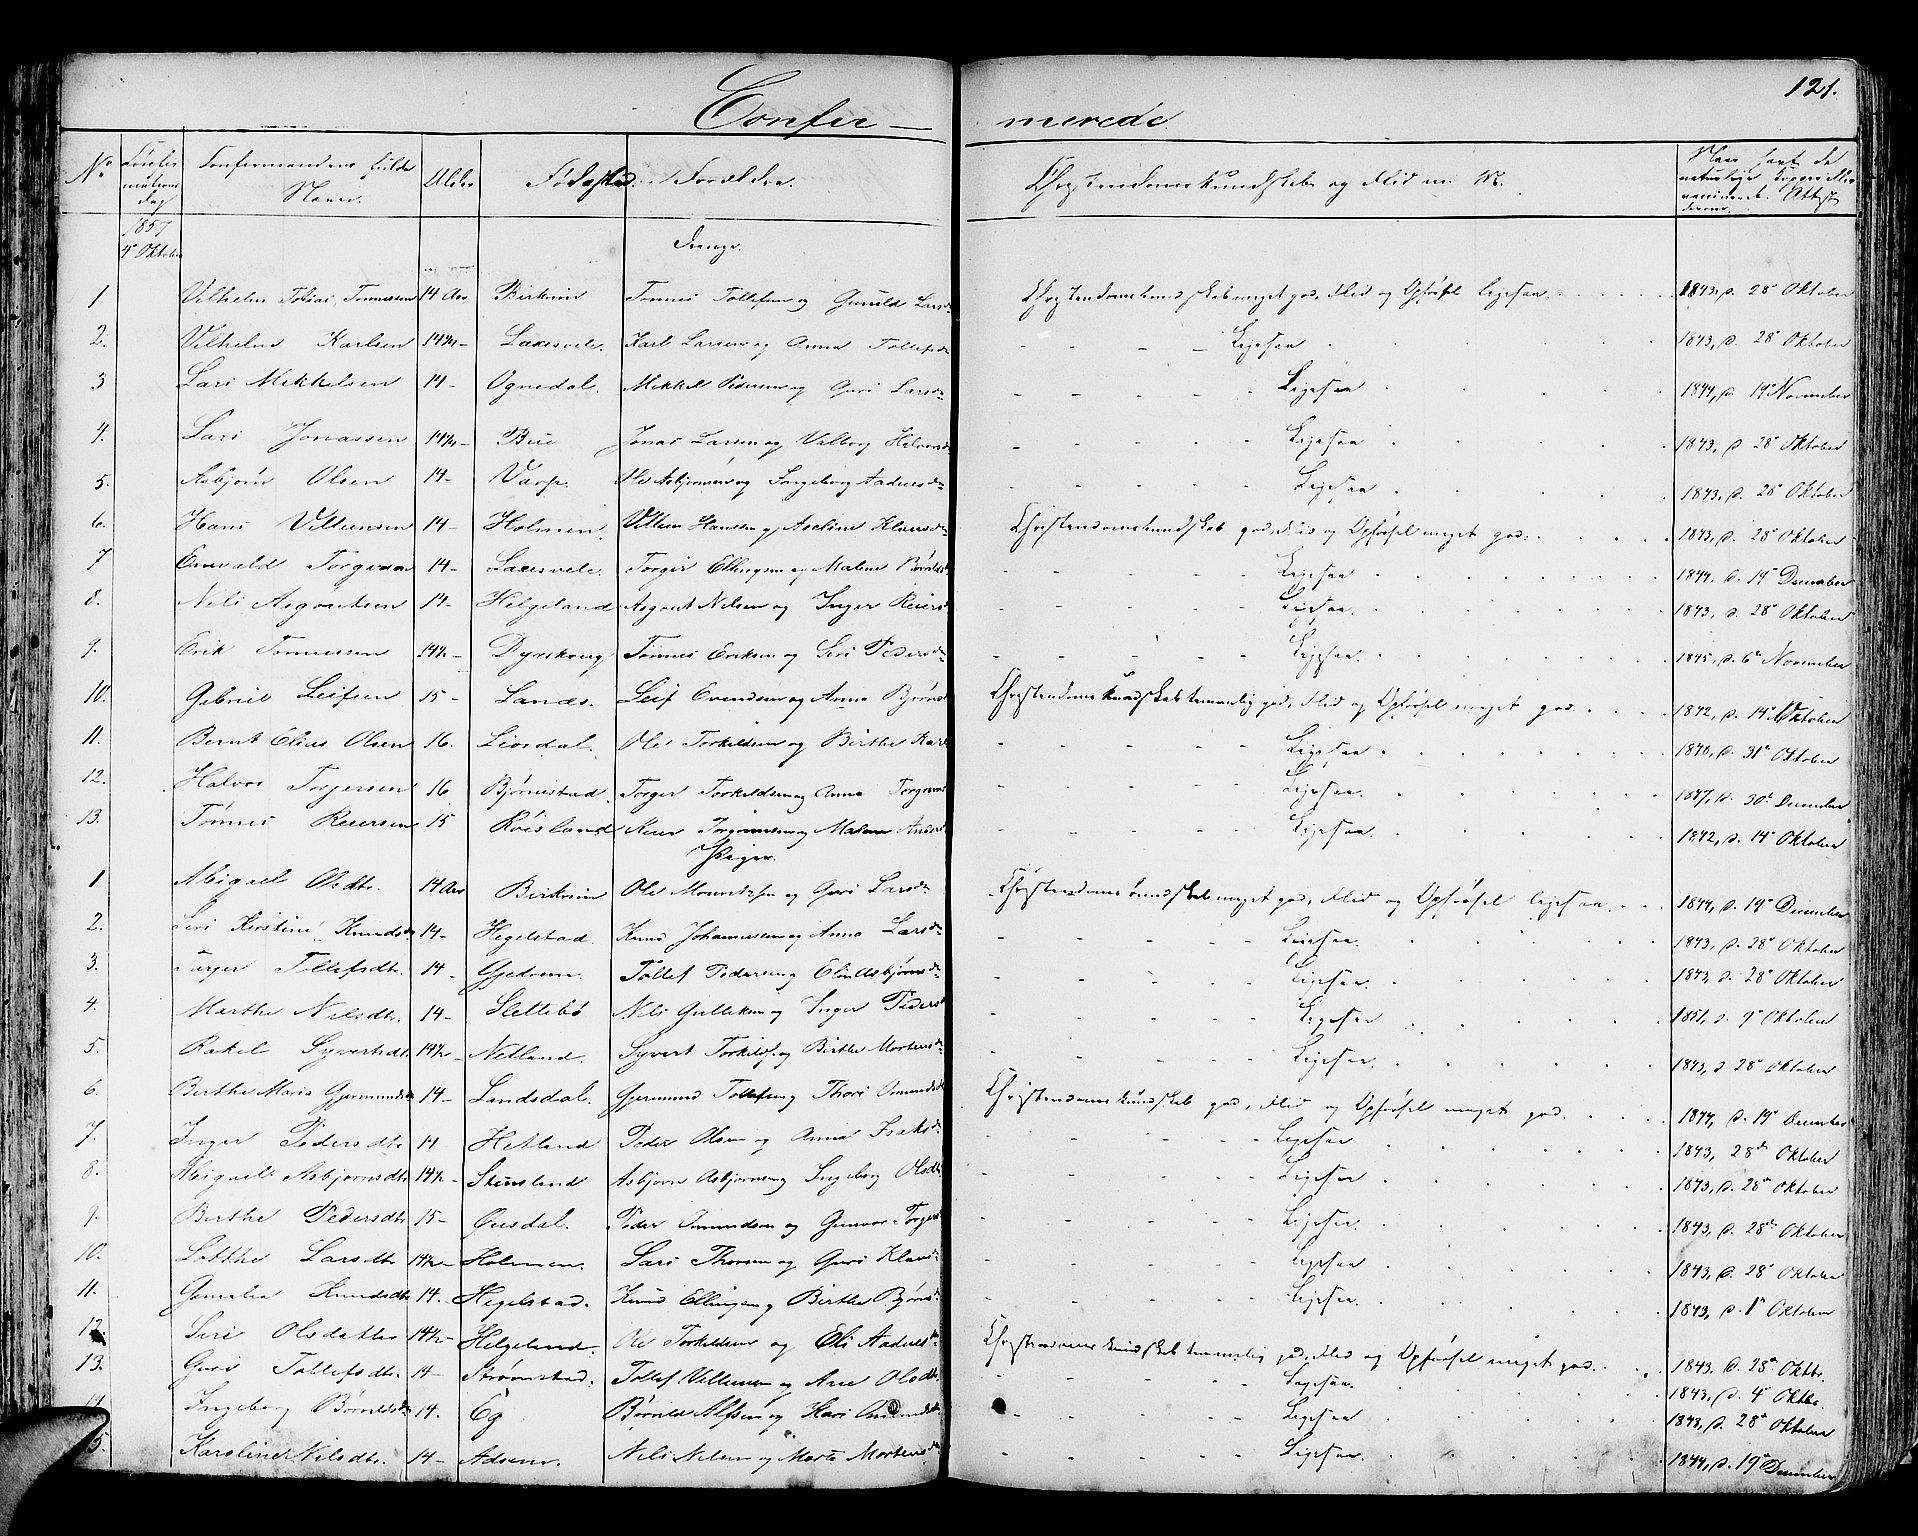 121.
Confir - merede.
No Confirmations Dag Confirmandens fulde Navn. Alder Fødested. Forældre. Christendomskundskab og Flid m. M. Naar havt de naturlige Kopper eller vaccineret. Attest
1857
4de Oktober Drenge.
1 Vilhelm Tobias Tønnessen 14 Aar Birkrem Tønnes Tollefsen og Gunild Larsd. Christendomskundskab meget god, Flid og Opførsel ligesaa. 1843, d. 28de Oktober
2. Vilhelm Karlsen 14½ - Laxesvele. Karl Larsen og Anna Tollefsd. - Ligesaa 1843, d. 28de Oktober
3 Lars Mikkelsen 14 - Ognedal. Mikkel Pedersen og Guri Larsd. - Ligesaa 1844, d. 19de November
4. Lars Jonassen 14½ - Bue Jonas Larsen og Valborg - Ligesaa 1843, d. 28de Oktober
5. Asbjørn Olsen 14 - Varp. Ole Asbjørnsen og Ingeborg Aadnesd. - Ligesaa 1843, d. 28de Oktober
6. Hans Villumsen 14 - Holmen. Villum Hansen og Klausd. Christendomskundskab god, Flid og Opførsel meget god. 1843, d. 28de Oktober
7 Torgersen 14 - Laxesvele. Torger Ellingsen og Malene - Ligesaa 1844, d. 19de December
8. Nils Asgautsen 14 - Helgeland Asgaut Nilsen og Inger Reiersd. - Ligesaa 1843, d. 28de Oktober
9. Erik Tønnessen 14½ - Tønnes Eriksen og Siri Pedersd. - Ligesaa 1845, d. 6te November
10. Gabriel Leifsen 15 - Landes. Leif Evendsen og Anna Bjørnsd. Christendomskundskab temmelig god, Flid og Opførsel meget god. 1842, d. 14de Oktober
11. Bernt Elias Olsen 16. Liosdal. Ole Torkildsen og Birthe - Ligesaa 1840, d. 31te Oktober
12. Halvor Torgersen 16 Bjørnestad. Torger Torkildsen og Anna - Ligesaa 1847, d. 30te December
13. Tønnes Reiersen 15 Røisland Reier og Malene Andersd. - Ligesaa. 1842, d. 14de Oktober
Piger.
1 Abigael Olsdtr. 14 Aar Birkrem Ole Mauritzsen og Guri Larsd. Christendomskundskab meget god, Flid og Opførsel ligesaa. 1844, d. 19de December
2. Siri Kirstine Knudsd. 14 - Hegelstad. Knud Johannessen og Anna Larsd. - Ligesaa. 1843, d. 28de Oktober
3. Tollefsdtr. 14 - Gjedrem. Tollef Pedersen og - Ligesaa. 1843, d. 28de Oktober
4. Marthe Nilsdtr. 14 - Slettebø Nils Gulliksen og Inger Pedersd. - Ligesaa 1851, d. 9de Oktober
5. Rakel Syvertsdtr. 14½ - Netland. Syvert Torkilds. og Birthe Mortensd. - Ligesaa. 1843, d. 28de Oktober
6. Berthe Maria Gjermundsd. 14 - Landsdal. Gjermund Tollefsen og Thori Omundsd. Christendomskundskab god, Flid og Opførsel meget god. 1844, d. 19de December
7. Inger Pedersdtr. 14 Hetland Peder Olsen og Anna Isaksd. - Ligesaa 1843, 28de Oktober
8. Abigael Asbjørnsdtr. 14½ - Stensland Asbjørn Asbjørnsen og Ingeborg Olsdtr. - Ligesaa 1843, d. 28de Oktober
9. Berthe Pedersdtr. 15 - Peder Omundsen og Gunvor Torgersd. - Ligesaa. 1843, d. 28de Oktober
10. Lotthe Larsdtr. 14½ - Holmen. Lars Thorsen og Guri Klausd. - Ligesaa 1843, d. 28de Oktober
11. Knudsdtr. 14. Hegelstad. Knud Ellingsen og Birthe Bjørnsd. - Ligesaa. 1843, d. 1de Oktober
12. Siri Olsdatter 14½ - Helgeland. Ole Torkildsen og Eli Aadnesd. Christendomskundskab temmelig god, Flid og Opførsel meget god. 1843, d. 28de Oktbr.
13. Guri Tollefsdtr. 14 - Strømstad. Tollef Villumsen og Ane Olsdtr. - Ligesaa. 1843, d. 4de Oktbr.
14 Ingeborg 14. Eg og Omundsd. - Ligesaa 1843, d. 28de Oktober
15. Karoline Nilsdtr. 14 - Adsem. Nils Nilsen og Marte Mortensd. - Ligesaa 1844, d. 19de December